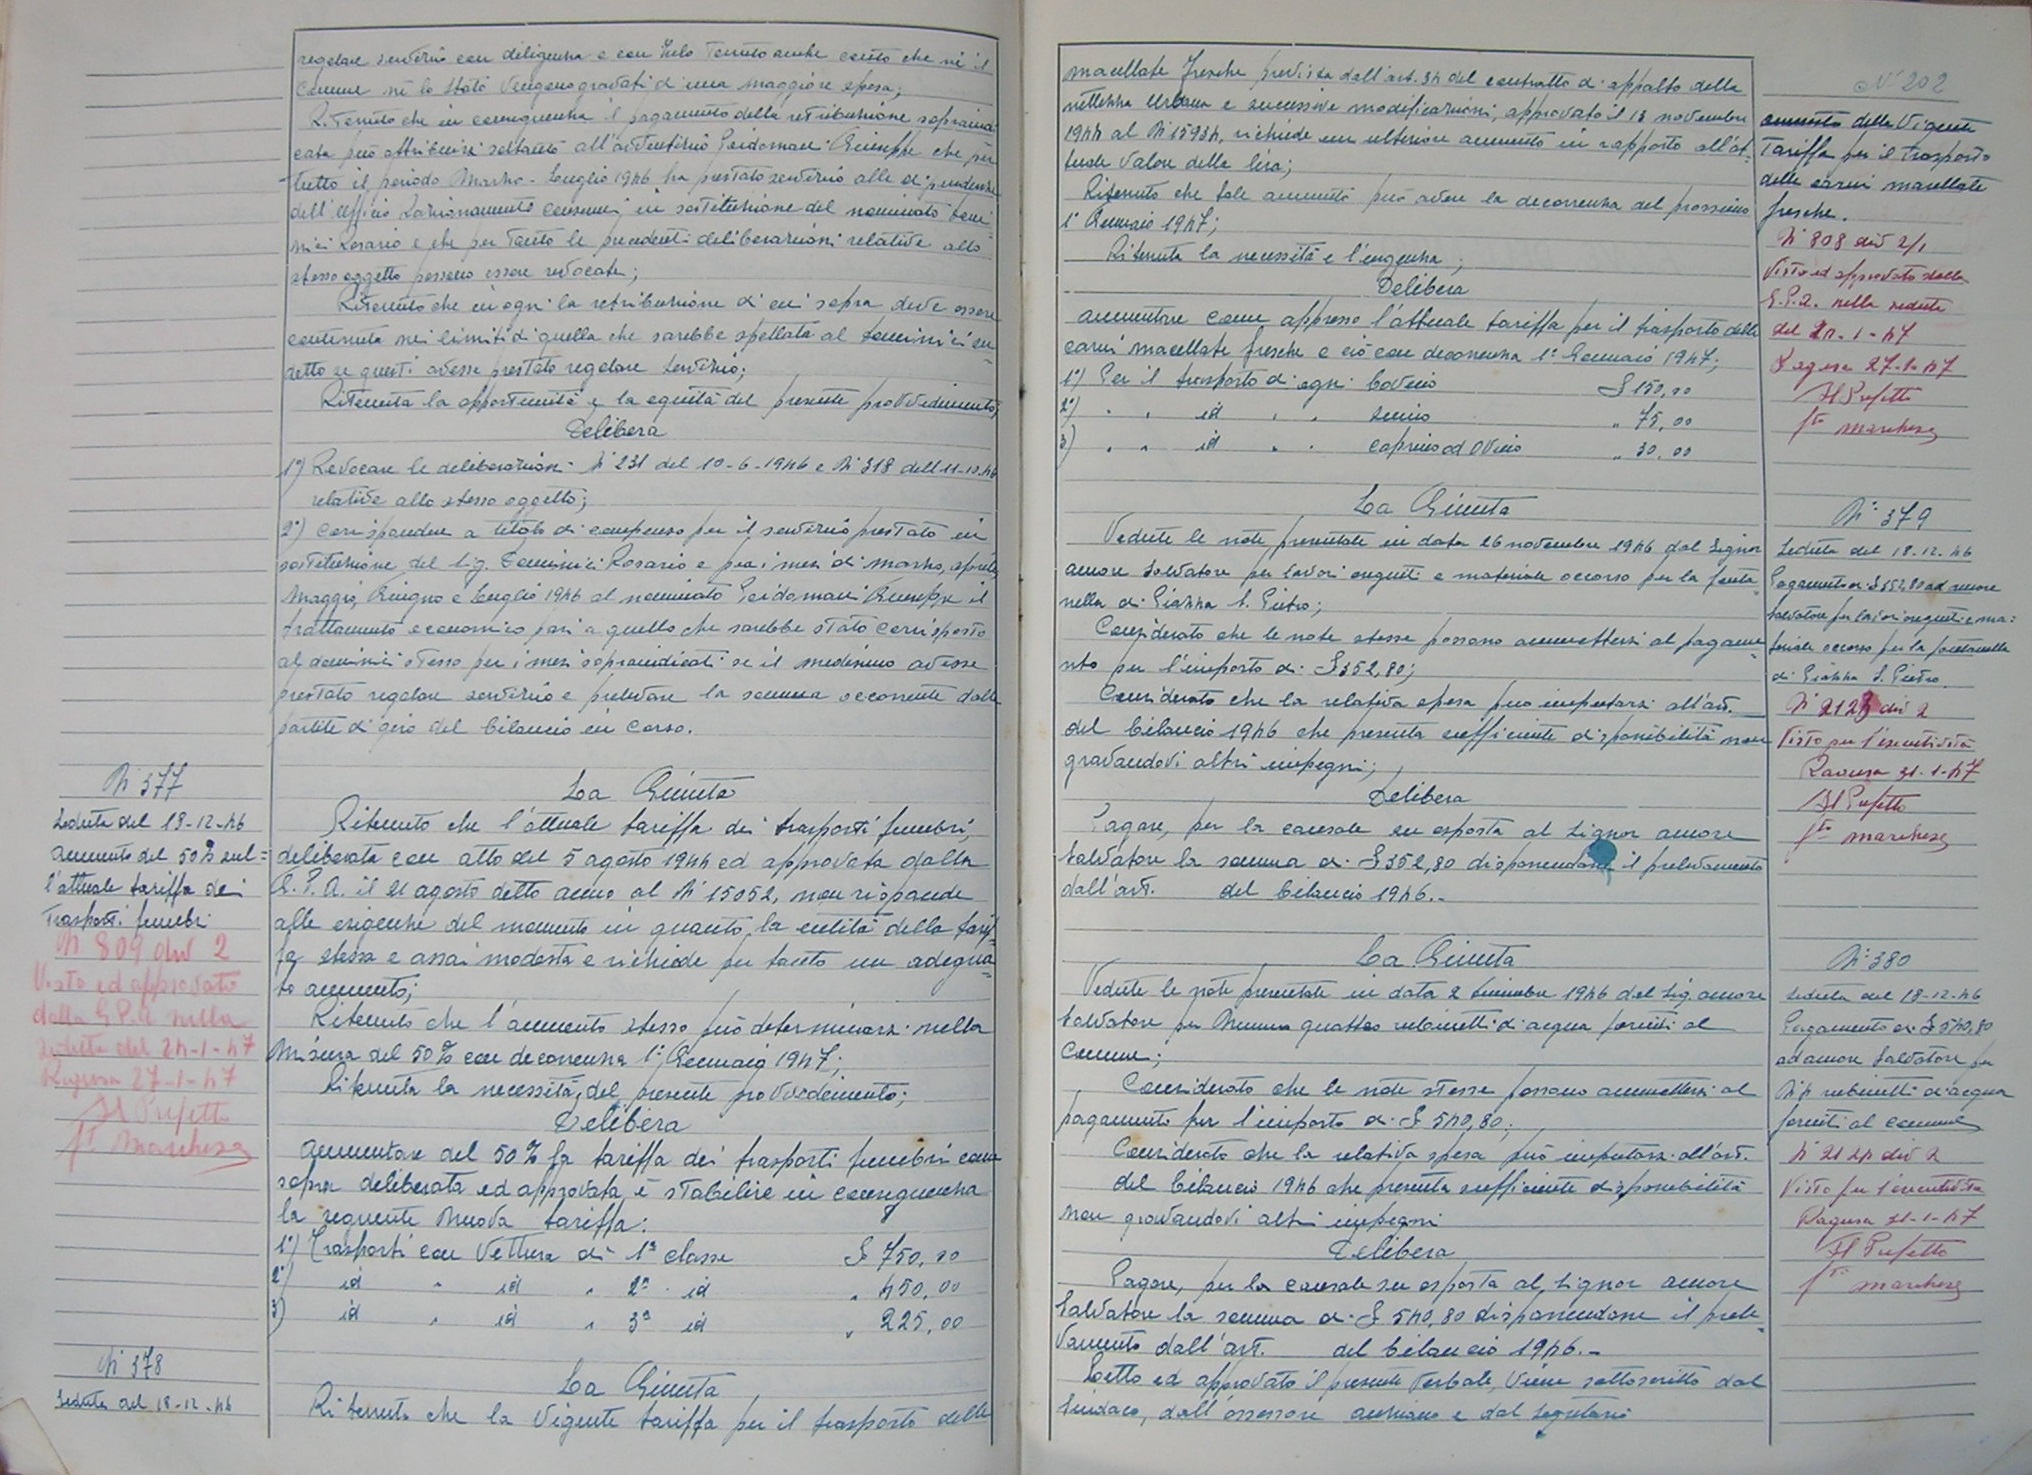 regolare servizio con diligenza e con zelo tenuto anche conto che nè il
Comune nè lo Stato vengono gravati di una maggiore spesa;
Ritenuto che in conseguenza il pagamento della retribuzione sopraindi
cata può attribuirsi soltanto all'avventizio Guidomani Giuseppe che per
tutto il periodo Marzo - Luglio 1946 ha prestato servizio alle dipendenze
dell'Ufficio Razionamento Consumi in sostituzione del nominato Domi
nici Rosario e che per tanto le precedenti deliberazioni relative allo
stesso oggetto possono essere revocate;
Ritenuto che in ogni la retribuzione di cui sopra deve essere
contenuta nei limiti di quella che sarebbe spettata al Dominici sud
detto se questi avesse prestato regolare servizio;
Ritenuta la opportunità e la equità del presente provvedimento;
Delibera
1°) Revocare le deliberazioni N° 231 del 10-6-1946 e N° 318 dell'11-10-46
relative allo stesso oggetto;
2°) Corrispondere a titolo di compenso per il servizio prestato in
sostituzione del Sig. Dominici Rosario e per i mesi di marzo, aprile,
Maggio, Giugno e Luglio 1946 al nominato Guidomani Giuseppe il
trattamento economico pari a quello che sarebbe stato corrisposto
al Dominici stesso per i mesi sopraindicati se il medesimo avesse
prestato regolare servizio e prelevare la somma occorrente dalle
partite di giro del bilancio in corso.
N° 377
Seduta del 18-12-46
Aumento del 50% sul=
l'attuale tariffa dei
Trasporti funebri
N 809 div 2
Visto ed approvato
dalla G.P.A. nella
seduta del 24-1-47
Ragusa 27-1-47
Il Prefetto
f.to Marchese
La Giunta
Ritenuto che l'attuale tariffa dei trasporti funebri,
deliberata con atto del 5 agosto 1944 ed approvata dalla
G.P.A. il 21 agosto detto anno al N° 15052, non risponde
alle esigenze del momento in quanto la entità della tarif=
fa stessa è assai modesta e richiede per tanto un adegua=
to aumento;
Ritenuto che l'aumento stesso può determinarsi nella
misura del 50% con decorrenza 1° Gennaio 1947;
Ritenuta la necessità del presente provvedimento;
Delibera
Aumentare del 50% la tariffa dei trasporti funebri come
sopra deliberata ed approvata e stabilire in conseguenza
la seguente nuova tariffa:
1°) Trasporti con vettura di 1ª classe £ 750,00
2°) id " id " 2ª id " 450,00
3) id " id " 3ª id " 225,00
N° 378
Seduta del 18-12-46
La Giunta
Ritenuto che la vigente tariffa per il trasporto delle
N° 202
macellate fresche prevista dall'art. 34 del contratto di appalto della
nettezza urbana e successive modificazioni, approvato il 13 novembre
1944 al N° 15934, richiede un ulteriore aumento in rapporto all'at=
tuale valore della lira;
Ritenuto che tale aumento può avere la decorrenza dal prossimo
1° Gennaio 1947;
Ritenuta la necessità e l'urgenza;
Delibera
aumentare come appresso l'attuale tariffa per il trasporto delle
carni macellate fresche e ciò con decorrenza 1° Gennaio 1947;
1°) Per il trasporto di ogni bovino £ 150,00
2°) " " id " " suino " 75,00
3) " " id " " caprino od ovino " 30,00
aumento della vigente
Tariffa per il trasporto
delle carni macellate
fresche.
N° 808 div 2/1
Visto ed approvato dalla
G.P.A. nella seduta
del 24-1-47
Ragusa 27-1-47
Il Prefetto
f.to Marchese
La Giunta
Vedute le note presentate in data 26 novembre 1946 dal Signor
Amore Salvatore per lavori eseguiti e materiale occorso per la fonta
nella di Piazza S. Pietro;
Considerato che le note stesse possono ammettersi al pagame=
nto per l'importo di £ 352,80;
Considerato che la relativa spesa può imputarsi all'art.
del bilancio 1946 che presenta sufficiente disponibilità non
gravandovi altri impegni;
Delibera
Pagare, per la causale su esposta al Signor Amore
Salvatore la somma di £ 352,80 disponendone il prelevamento
dall'art. del bilancio 1946.-
N° 379
Seduta del 18-12-46
Pagamento di £ 352,80 ad Amore
Salvatore per lavori eseguiti e ma=
teriale occorso per la fontanella
di Piazza S. Pietro.
N° 2123 div 2
Visto per l'esecutività
Ragusa 31-1-47
Il Prefetto
f.to Marchese
La Giunta
Vedute le note presentate in data 2 Dicembre 1946 dal Sig. Amore
Salvatore per Numero quattro rubinetti di acqua forniti al
Comune;
Considerato che le note stesse possono ammettersi al
pagamento per l'importo di £ 540,80;
Considerato che la relativa spesa può imputarsi all'art.
del bilancio 1946 che presenta sufficiente disponibilità
non gravandovi altri impegni
Delibera
Pagare, per la causale su esposta al Signor Amore
Salvatore la somma di £ 540,80 disponendone il prele=
vamento dall'art. del bilancio 1946.-
Letto ed approvato il presente verbale, viene sottoscritto dal
Sindaco, dall'assessore anziano e dal Segretario
N° 380
Seduta del 18-12-46
Pagamento di £ 540,80
ad Amore Salvatore per
N° 4 rubinetti d'acqua
forniti al Comune
N° 2124 div 2
Visto per l'esecutività
Ragusa 31-1-47
Il Prefetto
f.to Marchese